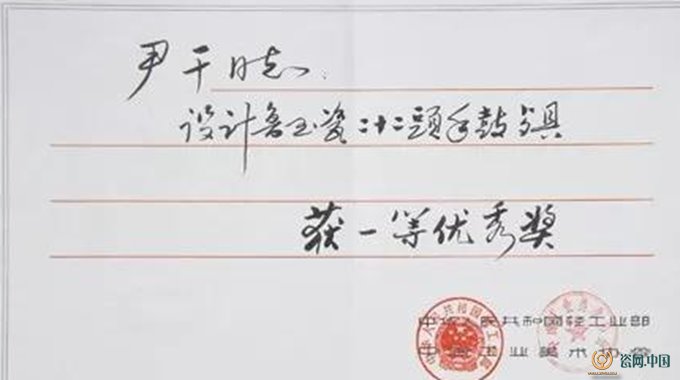 尹干同志:
设计鲁玉瓷二十二頭手鼓餐具
获一等优秀奖
中华人民共和国轻工业部
中国工业美术协会
瓷网.中国